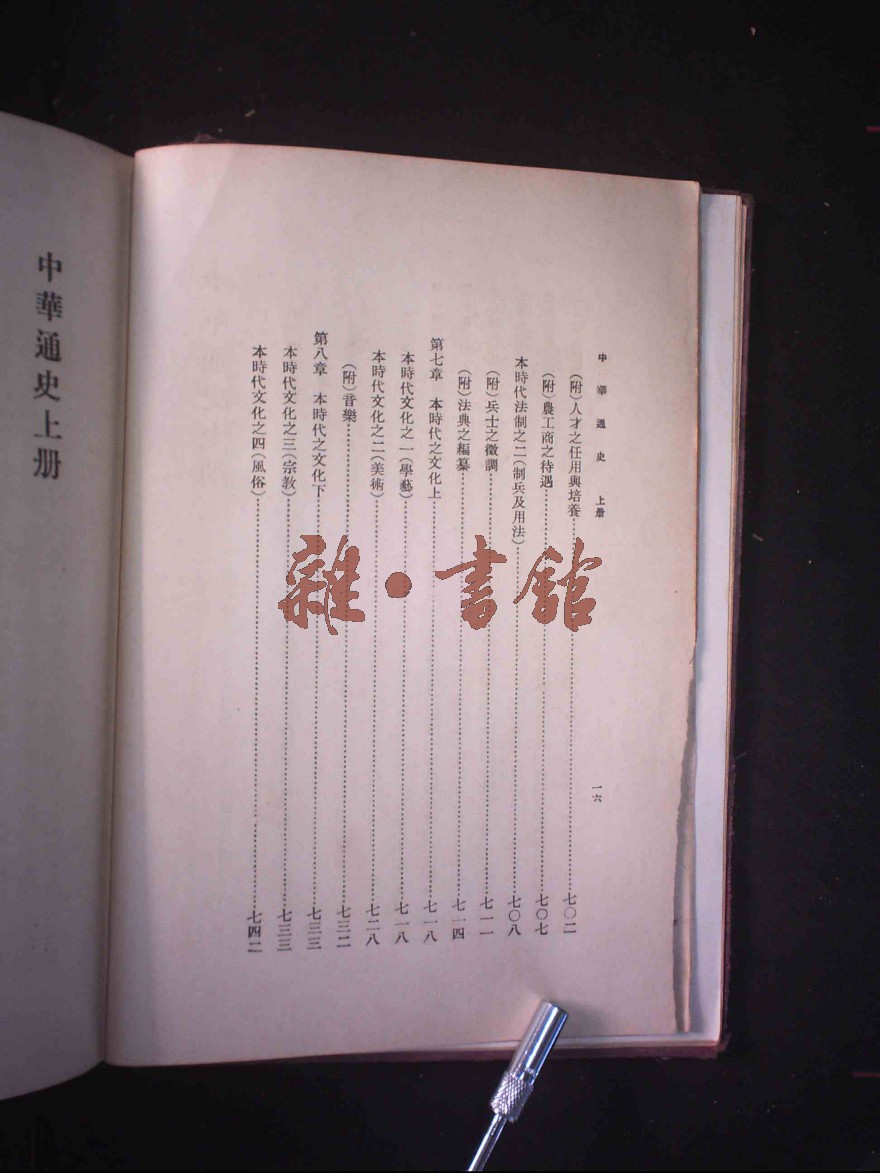 中華通史 上册
一六
（附）人才之任用與培養……七〇二
（附）農工商之待遇……七〇七
本時代法制之二（制兵及用法）……七〇八
（附）兵士之徵調……七一一
（附）法典之編纂……七一四
第七章 本時代之文化上……七一八
本時代文化之一（學藝）……七一八
本時代文化之二（美術）……七二八
（附）音樂……七三二
第八章 本時代之文化下……七三三
本時代文化之三（宗教）……七三三
本時代文化之四（風俗）……七四二
中華通史上册
雜·書館